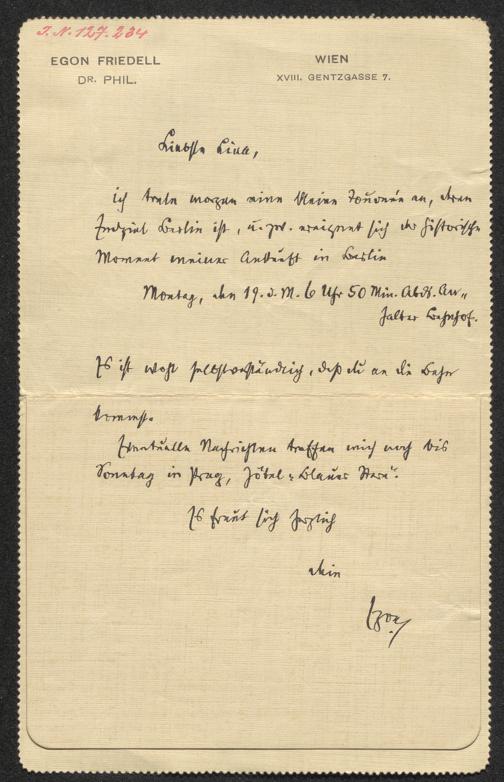 I.N. 127.234
EGON FRIEDELL
DR. PHIL.
WIEN
XVIII. GENTZGASSE 7.
Liebste Lina,
ich trete morgen eine kleine Tournée an, deren
Endziel Berlin ist, u. zw. ereignet sich der historische
Moment meiner Ankunft in Berlin
Montag, den 19. d. M. 6 Uhr 50 Min. Abds. An-
halter Bahnhof.
Es ist wohl selbstverständlich, daß du an die Bahn
kommst.
Eventuelle Nachrichten treffen mich noch bis
Sonntag in Prag, Hôtel „Blauer Stern“.
Es freut sich herzlich
dein
Egon